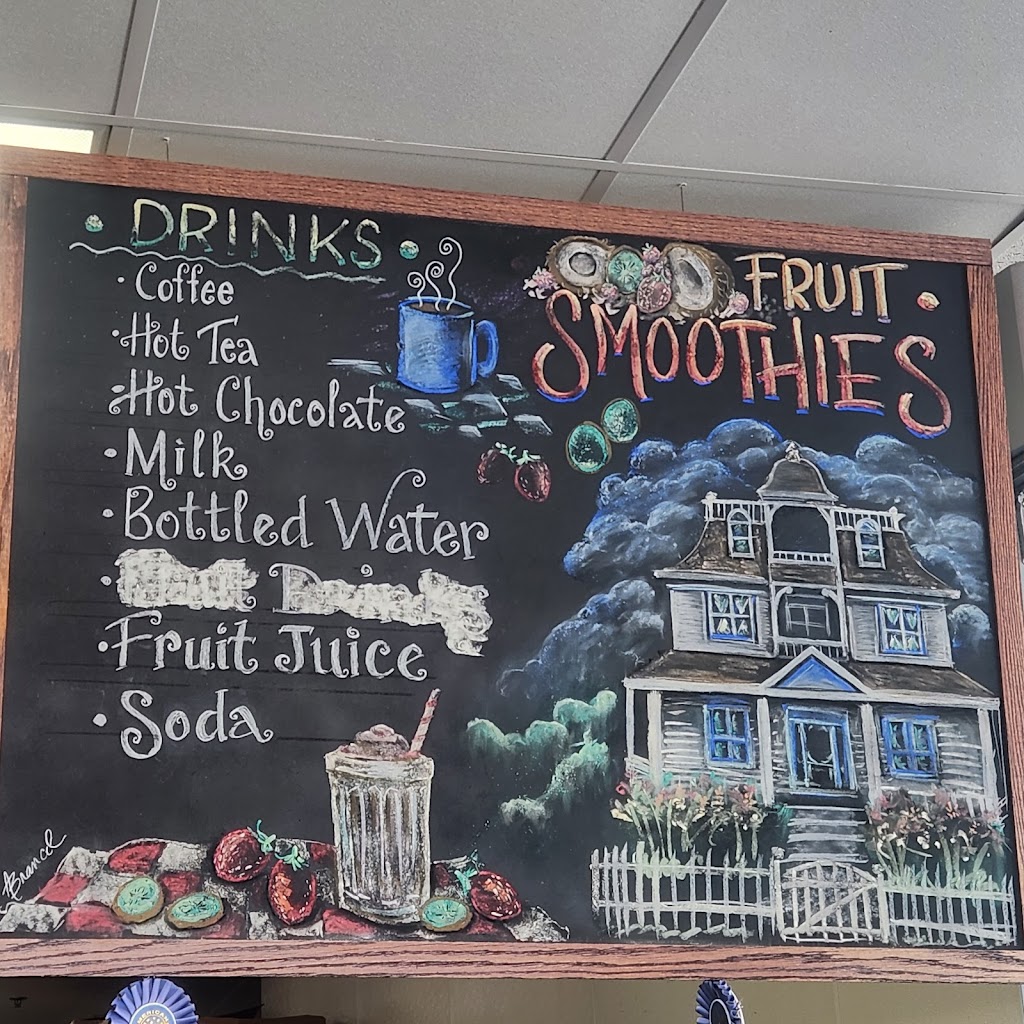 • DRINKS •
• Coffee
• Hot Tea
• Hot Chocolate
• Milk
• Bottled Water
• Fruit Juice
• Soda
FRUIT •
SMOOTHIES